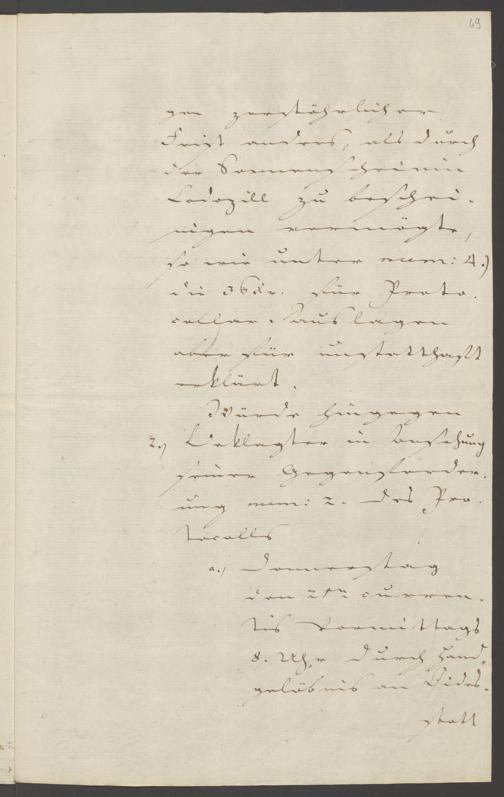 69
gen zerstöhrlicher
Frist anders, als durch
die Sonnenscheinin
zu beschei-
nigen vermögte,
so wie unter num: 4.)
die 36 xr. für Proto-
collar-Auslagen
aber für unstatthaft
erklärt.
Würde hingegen
2.) Beklagter in Ansehung
seiner Gegenforder-
ung num: 2. des Pro-
tocolls
a.) Donnerstag
den 2ten curren-
tis Vormittags
8. Uhr durch Hand-
gelöbnis an Eides-
statt